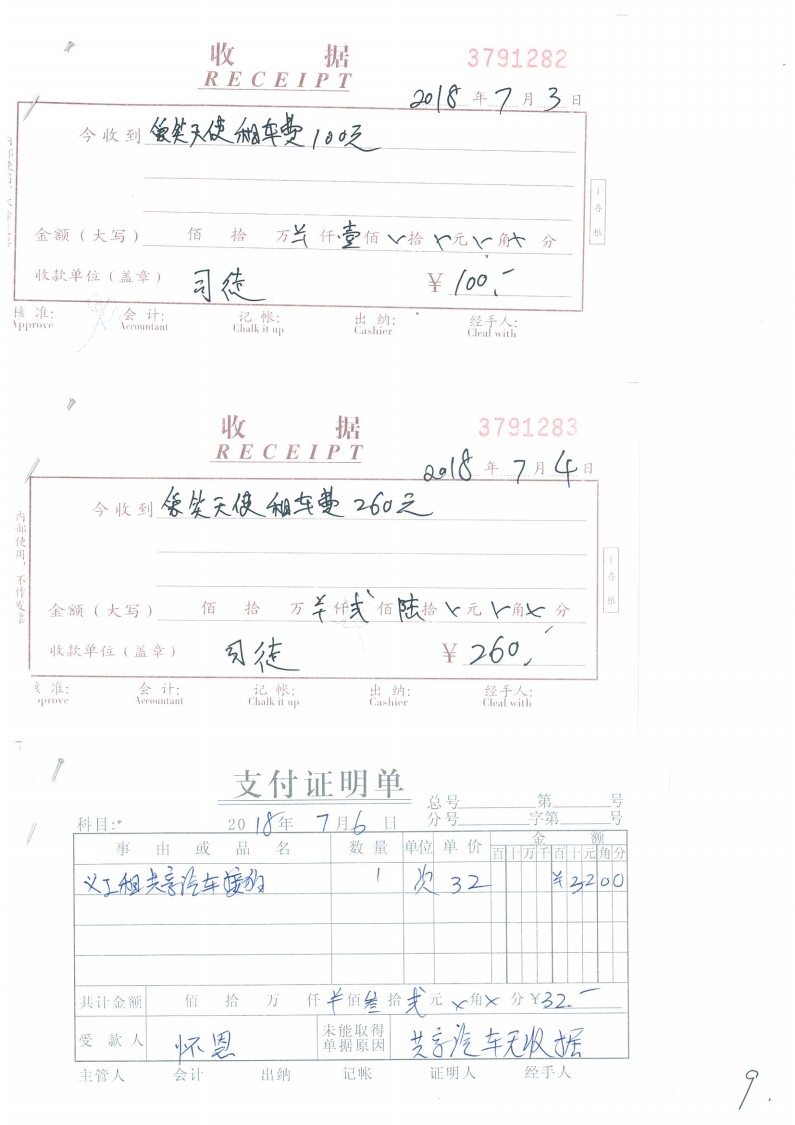 收 据 3791282
RECEIPT
2018 年 7 月 3 日
今收到 爱笑天使租车费100元
金额（大写） 佰 拾 万 仟 壹 佰 拾 元 角 分
收款单位（盖章） 司徒 ¥ 100.-
核 准: 会 计: 记 帐: 出 纳: 经手人:
Approve Accountant Chalk it up Cashier Cleal with
收 据 3791283
RECEIPT
2018 年 7 月 4 日
内部使用，不作发票
今收到 爱笑天使租车费260元
金额（大写） 佰 拾 万 仟 贰 佰 陆 拾 元 角 分
收款单位（盖章） 司徒 ¥ 260.-
准: 会 计: 记 帐: 出 纳: 经手人:
prove Accountant Chalk it up Cashier Cleal with
支付证明单
总号 第 号
科目: 2018年 7月6日 分号 字第 号
事 由 或 品 名 数 量 单位 单 价 金 额
百 十 万 千 百 十 元 角 分
义工租共享汽车接狗 1 次 32 ¥3200
共计金额 佰 拾 万 仟 佰 叁 拾 贰 元 角 分 ¥32.-
受 款 人 怀恩 未能取得单据原因 共享汽车无收据
主管人 会计 出纳 记帐 证明人 经手人
9.